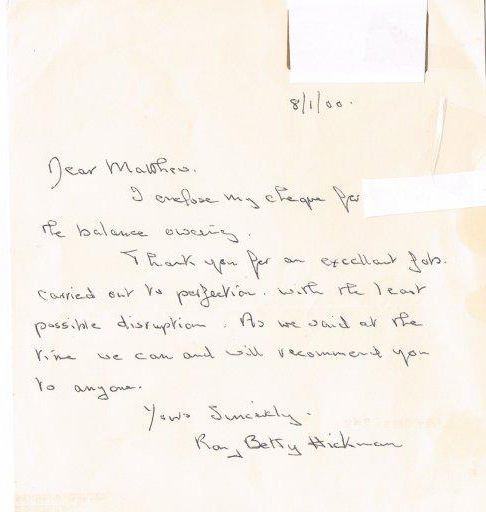 8/1/00.
Dear Matthew.
I enclose my cheque for
the balance owering.
Thank you for an excellant job.
carried out to perfection. with the least
possible disruption. As we said at the
time we can and will recommend you
to anyone.
Yours Sincerely.
Ray Betty Hickman